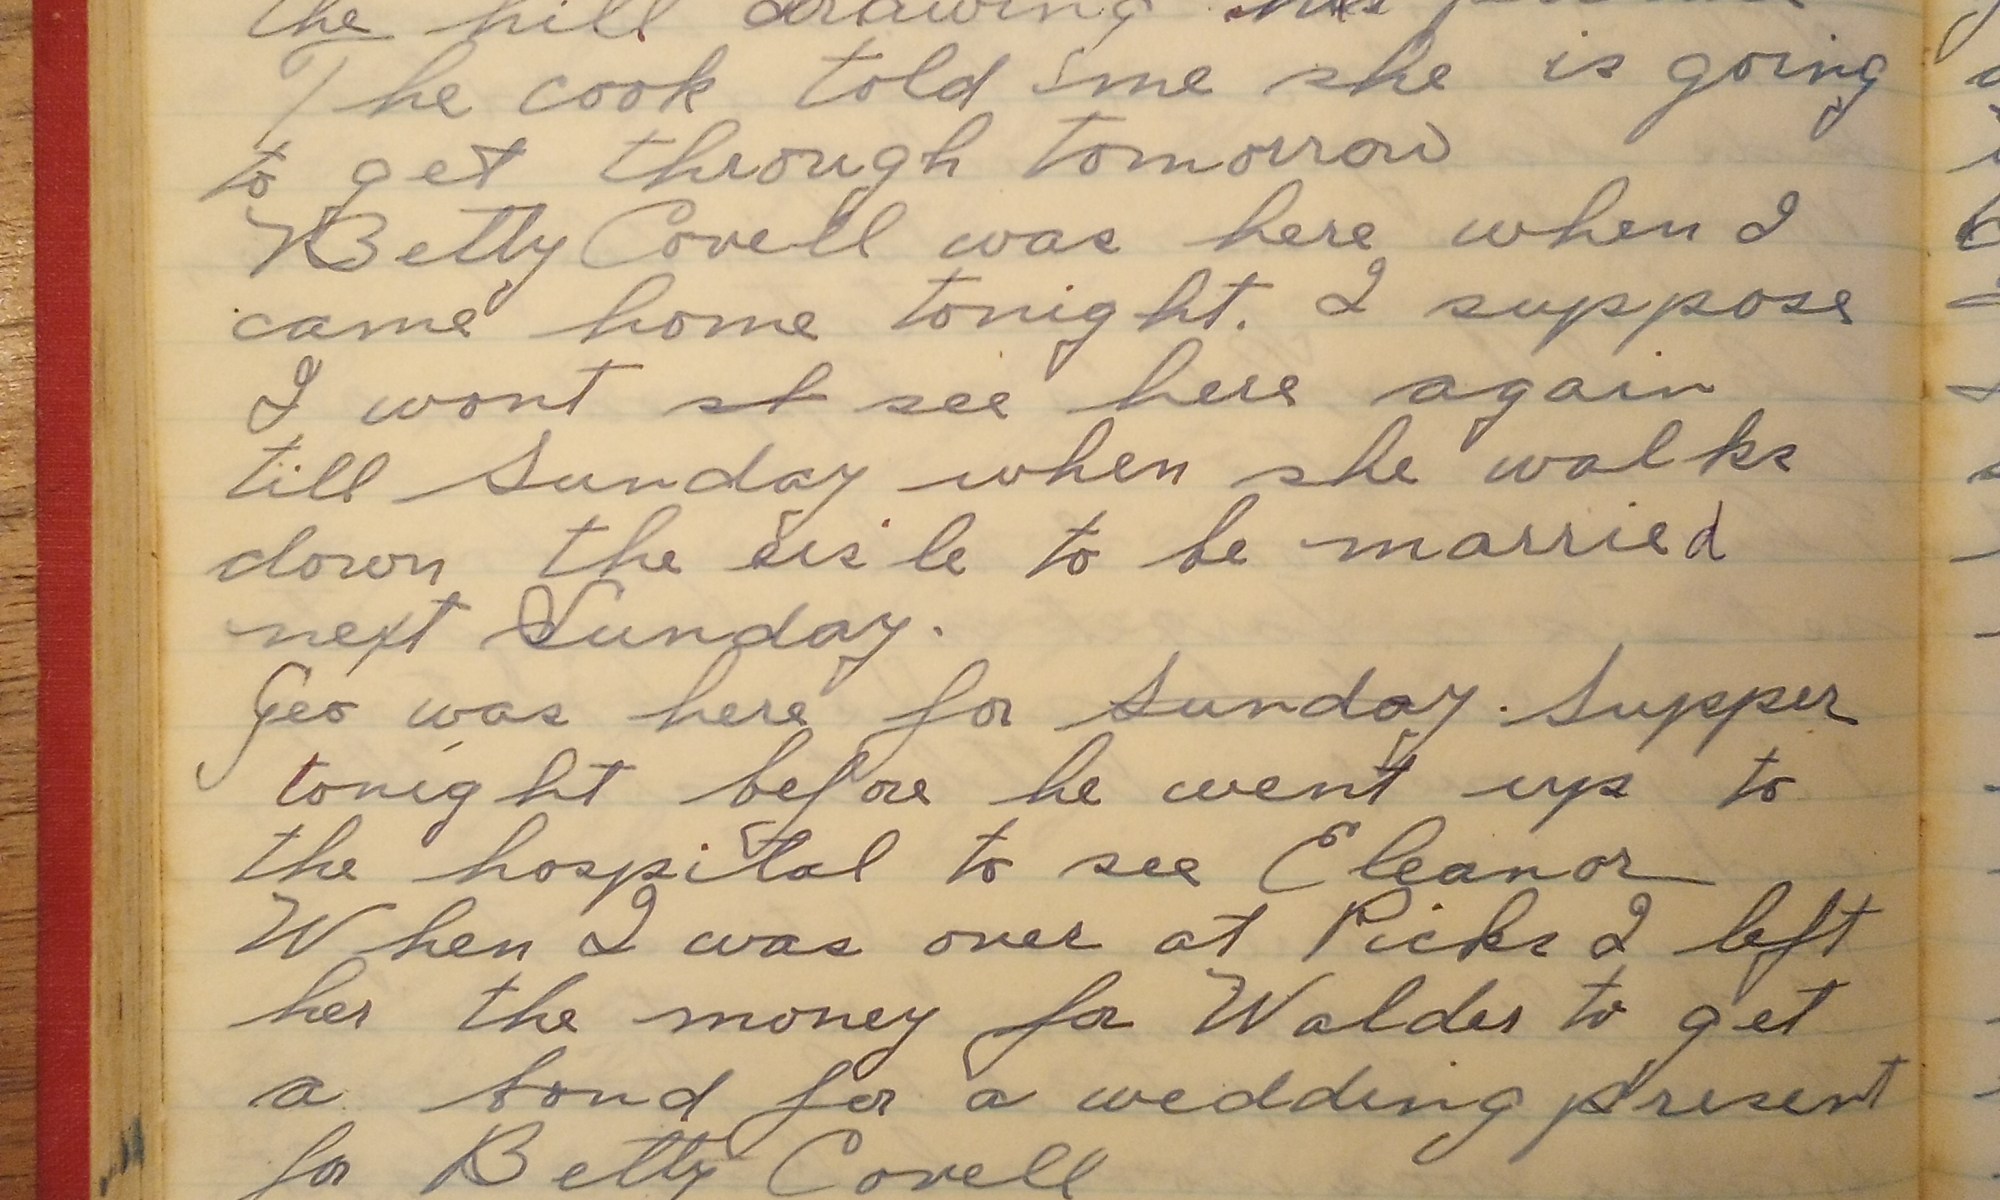 the hill drawing his
The cook told me she is going
to get through tomorrow
Betty Covell was here when I
came home tonight. I suppose
I wont st see here again
till Sunday when she walks
down the aisle to be married
next Sunday.
Geo was here for Sunday. Supper
tonight before he went up to
the hospital to see Eleanor
When I was over at Picks I left
her the money for Walder to get
a bond for a wedding present
for Betty Covell